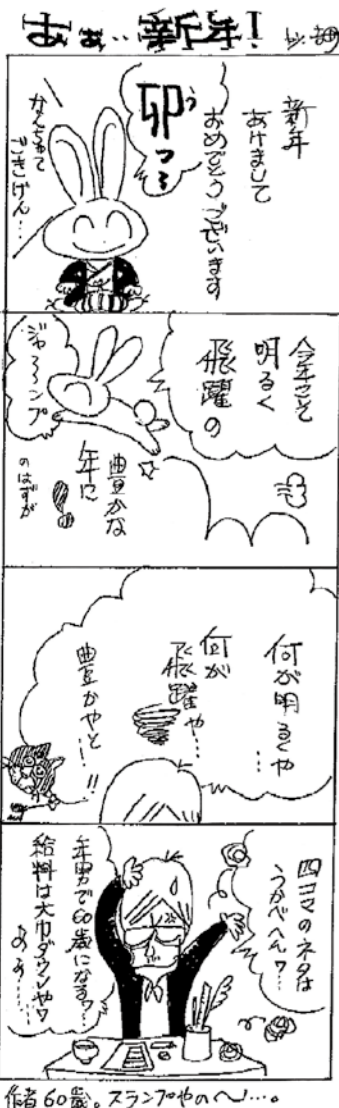 あぁ‥新年!
新年
あけまして
おめでとうございます
卯う
っ〜
なんちゃって
ごきげん…
今年こそ
明るく
飛躍の
ジャ〜〜ンプ
豊かな
年に
のはずが
何が明るくや
…
何が
飛躍や
…
豊かやと
…!!
四コマのネタは
うかべへんワ…
年男で60歳になるワ…
給料は大巾ダウンやワ
ああ…
作者60歳。スランプやのへ〜…。